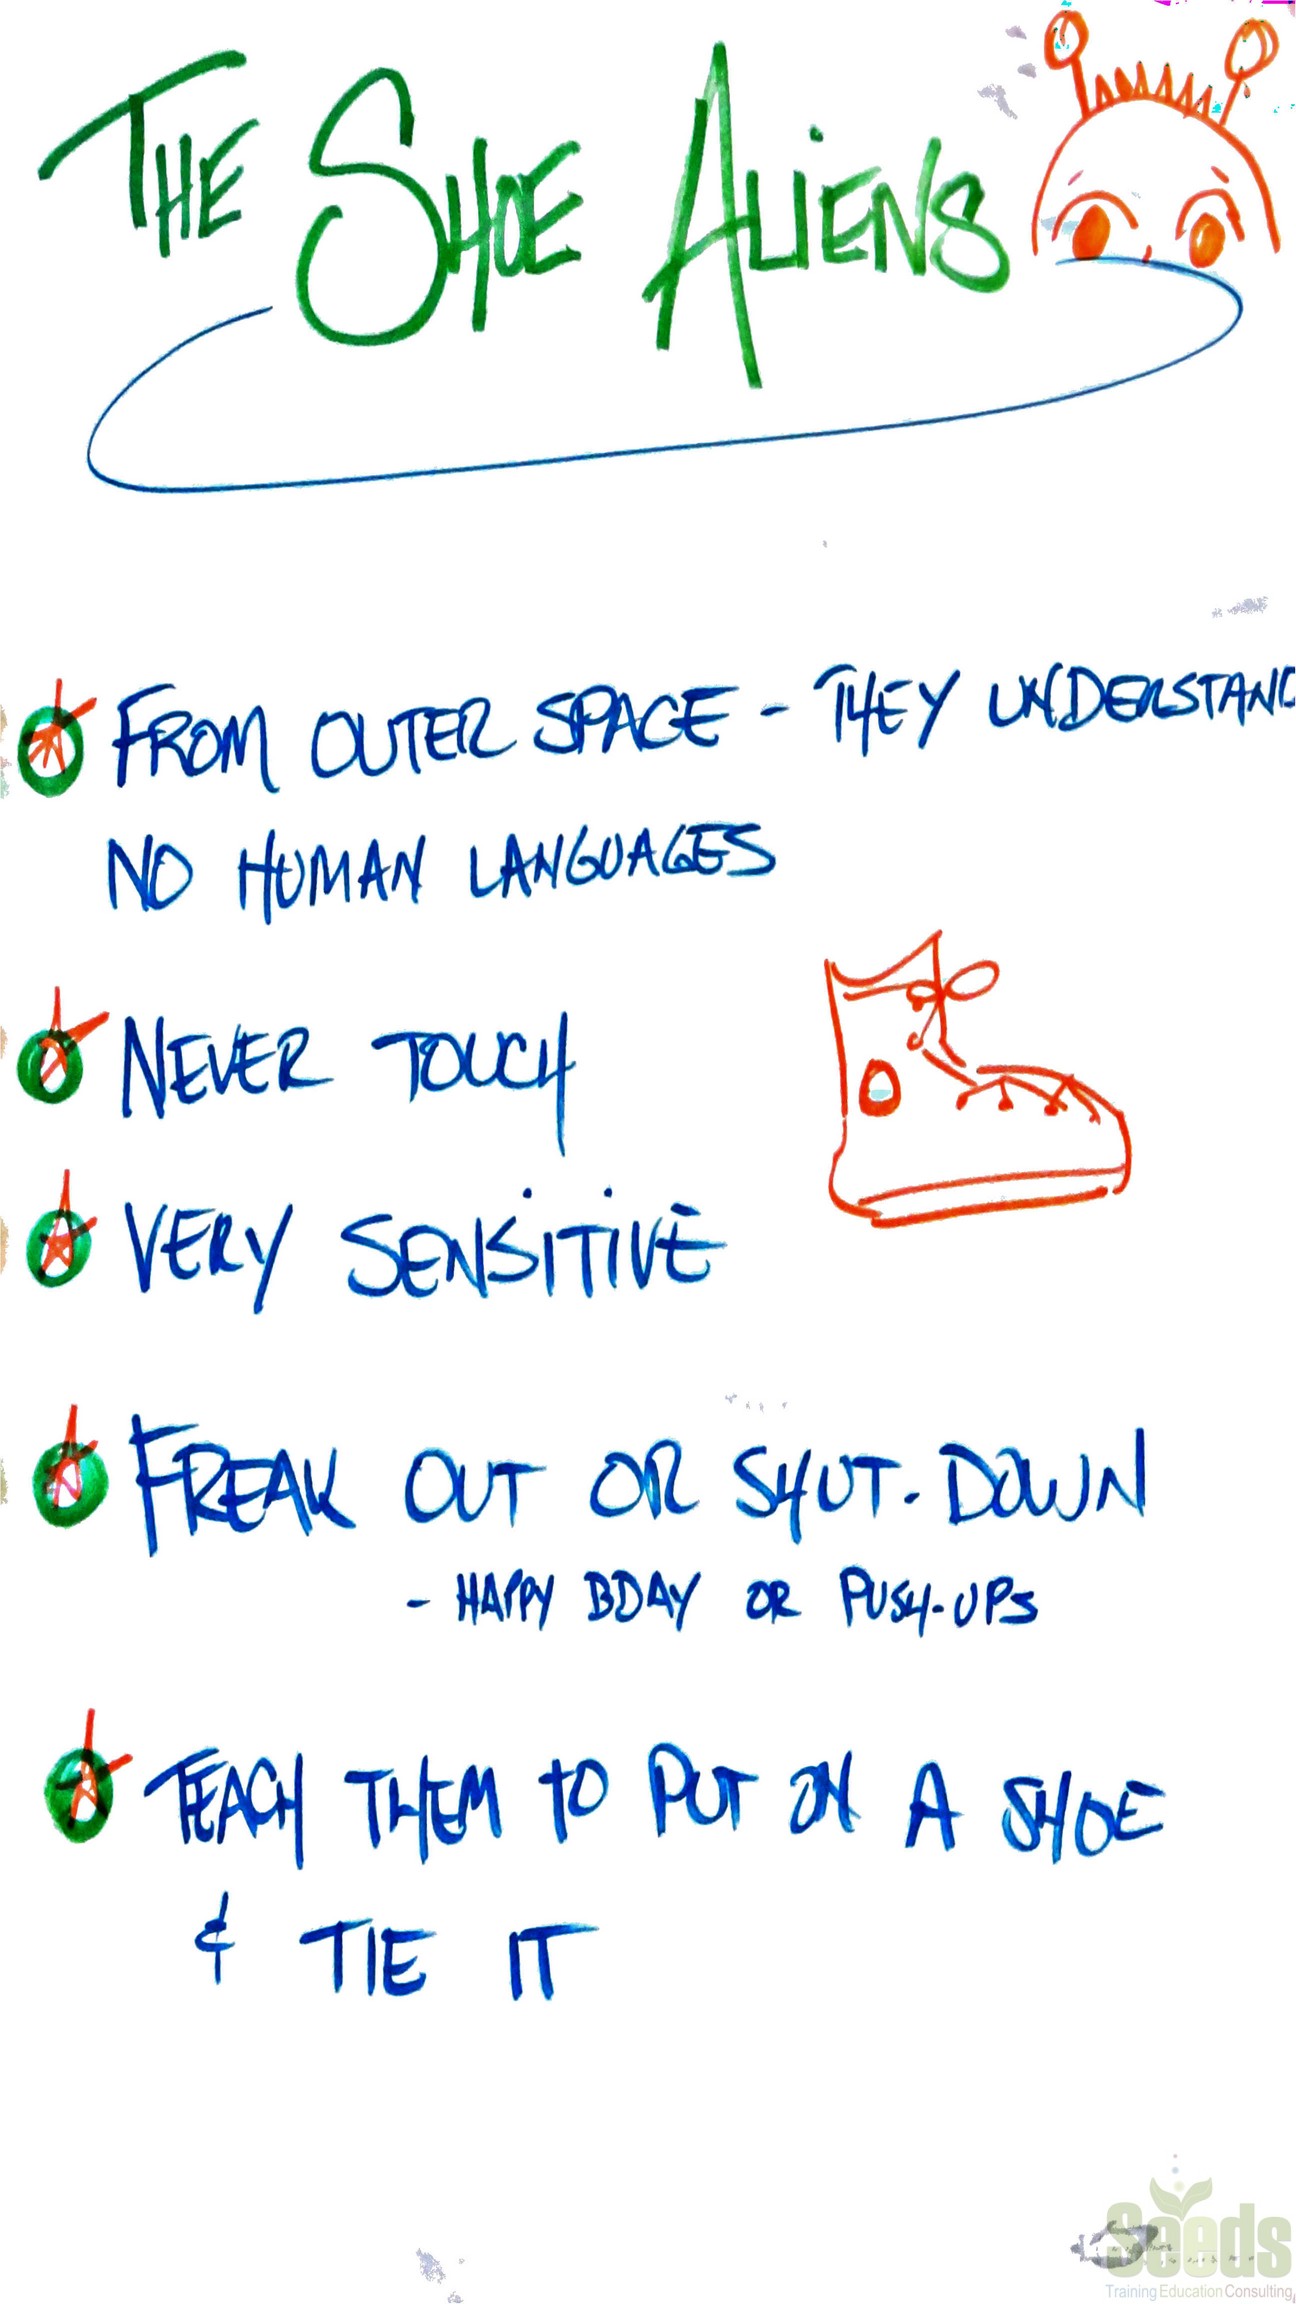 THE SHOE ALIENS
FROM OUTER SPACE - THEY UNDERSTAND
NO HUMAN LANGUAGES
NEVER TOUCH
VERY SENSITIVE
FREAK OUT OR SHUT-DOWN
- HAPPY BDAY OR PUSH-UPS
TEACH THEM TO PUT ON A SHOE
& TIE IT
Seeds
Training Education Consulting